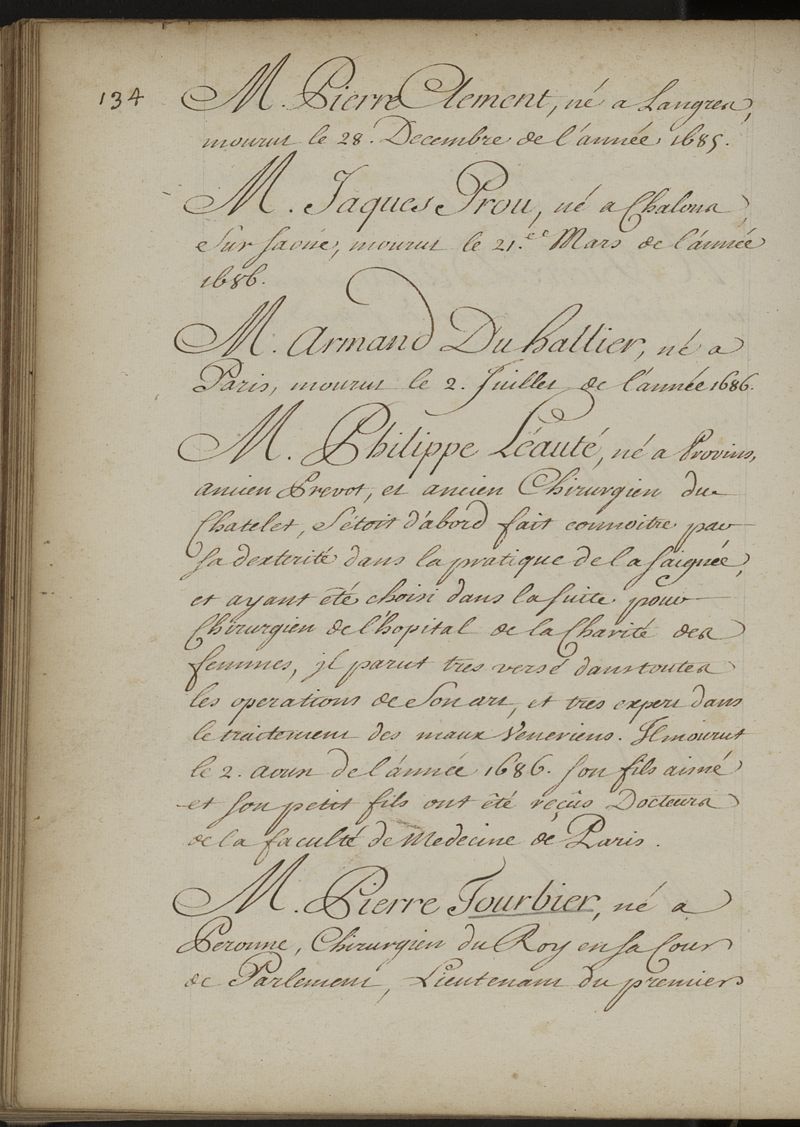 134
M. Pierre Clement, né a Langres,
mourut le 28. Decembre de l'année 1685.
M. Jaques Prou, né a Chalons
Sur Saône, mourut le 21.ee Mars de l'année
1686.
M. Armand Du hallier, né a
Paris, mourut le 2. Juillet de l'année 1686.
M. Philippe Léauté, né a Provins,
ancien Prevot, et ancien Chirurgien du
Chatelet, S'étoit d'abord fait connoitre par
sa dexterité dans la pratique de la saignée,
et ayant été choisi dans la suite pour
Chirurgien de l'hopital de la Charité des
femmes, jl parut tres versé dans toutes
les operations de Son art, et tres expert dans
le traitement des maux Veneriens. Il mourut
le 2. aoust de l'année 1686. son fils aimé
et son petit fils ont été reçûs Docteurs
de la faculté de Medecine de Paris.
M. Pierre Tourbier, né a
Peronne, Chirurgien du Roy en sa Cour
de Parlement, Lieutenant du premier